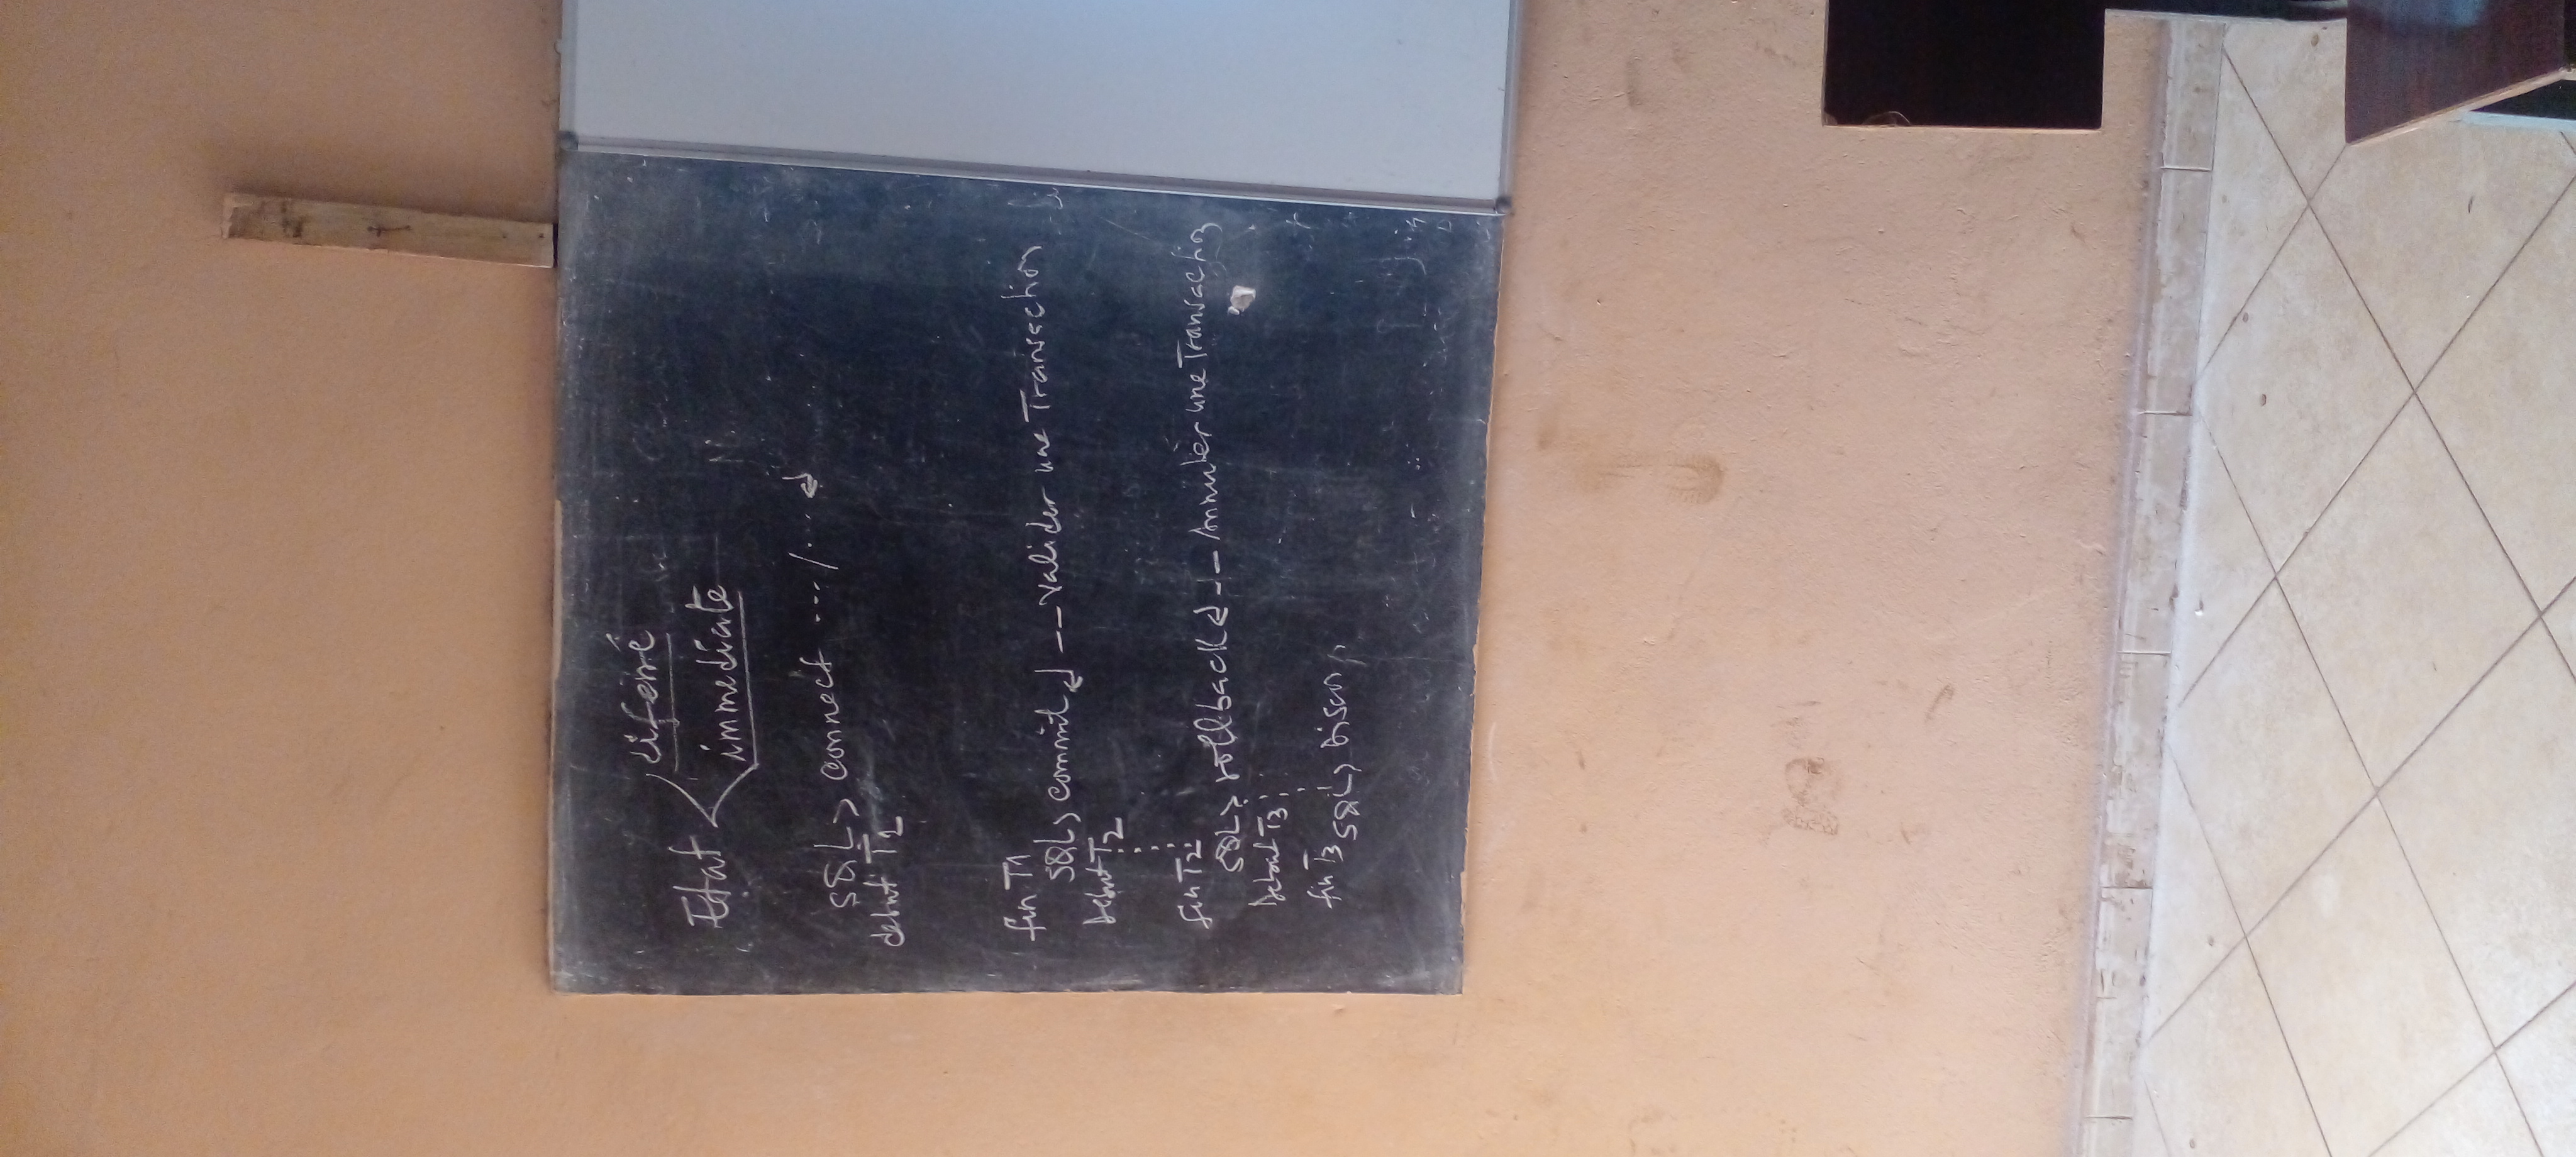 Etat
diferré
immediate
SQL> connect .../... ↲
debut T1
fin T1
SQL> commit ↲ -- valider une Transaction
Debut T2
fin T2
SQL> rollback ↲ -- Annuler une Transaction
Debut T3
fin T3 SQL> Discon